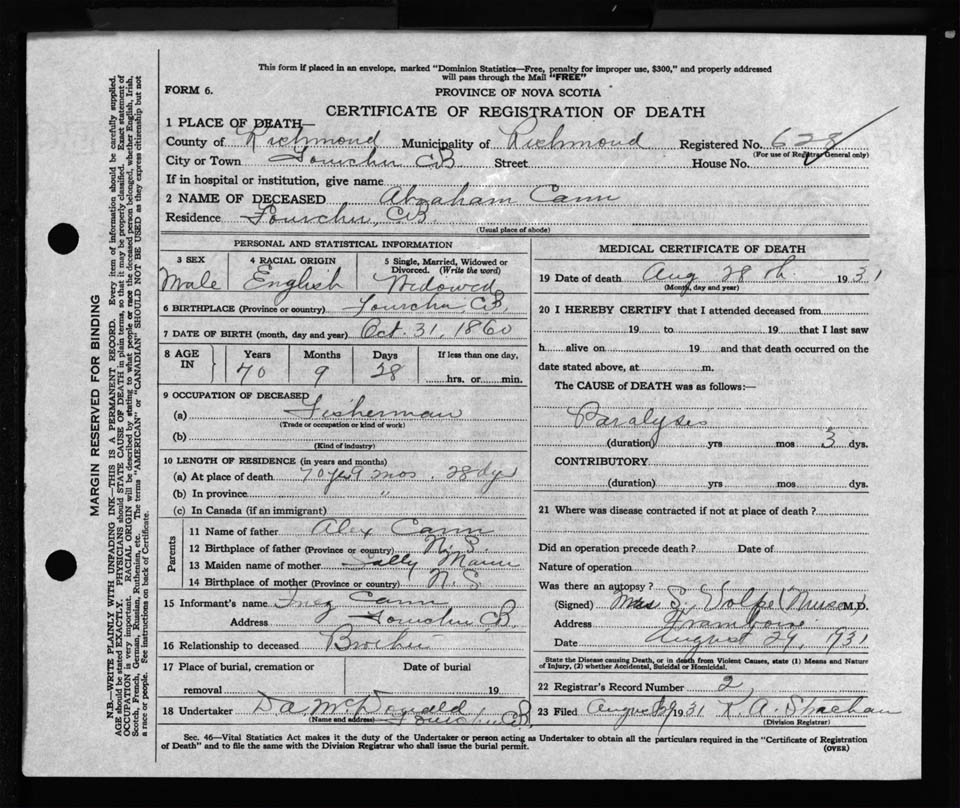 This form if placed in an envelope, marked "Dominion Statistics—Free, penalty for improper use, $300," and properly addressed
will pass through the Mail "FREE"
FORM 6.
PROVINCE OF NOVA SCOTIA
CERTIFICATE OF REGISTRATION OF DEATH
1 PLACE OF DEATH—
County of Richmond Municipality of Richmond Registered No. 628
(For use of Registrar General only)
City or Town Fourchu CB Street House No.
If in hospital or institution, give name
2 NAME OF DECEASED Abraham Cann
Residence Fourchu, CB.
(Usual place of abode)
PERSONAL AND STATISTICAL INFORMATION
3 SEX 4 RACIAL ORIGIN 5 Single, Married, Widowed or
Divorced. (Write the word)
Male English Widowed
6 BIRTHPLACE (Province or country) Fourchu, C.B.
7 DATE OF BIRTH (month, day and year) Oct. 31, 1860
8 AGE IN Years Months Days If less than one day,
70 9 28 hrs. or min.
9 OCCUPATION OF DECEASED
(a) Fisherman
(Trade or occupation or kind of work)
(b)
(Kind of industry)
10 LENGTH OF RESIDENCE (in years and months)
(a) At place of death 70 yrs 9 mos. 28 dys
(b) In province "
(c) In Canada (if an immigrant)
Parents
11 Name of father Alex Cann
12 Birthplace of father (Province or country) N. S.
13 Maiden name of mother Sally Mann
14 Birthplace of mother (Province or country) N. S.
15 Informant's name Cann
Address Fourchu CB.
16 Relationship to deceased
17 Place of burial, cremation or Date of burial
removal 19
18 Undertaker D.A. McDonald
(Name and address) Fourchu, CB.
MEDICAL CERTIFICATE OF DEATH
19 Date of death Aug 28th 1931
(Month, day and year)
20 I HEREBY CERTIFY that I attended deceased from
19 to 19 that I last saw
h alive on 19 and that death occurred on the
date stated above, at m.
The CAUSE of DEATH was as follows:—
Paralysis
(duration) yrs mos 3 dys.
CONTRIBUTORY
(duration) yrs. mos. dys.
21 Where was disease contracted if not at place of death?
Did an operation precede death? Date of
Nature of operation
Was there an autopsy?
(Signed) Mrs S. Volpe (Nurse) M.D.
Address Framboise
Date August 29, 1931
State the Disease causing Death, or in death from Violent Causes, state (1) Means and Nature
of Injury, (2) whether Accidental, Suicidal or Homicidal.
22 Registrar's Record Number 2
23 Filed 1931 K. A. Strachan
(Division Registrar)
Sec. 46—Vital Statistics Act makes it the duty of the Undertaker or person acting as Undertaker to obtain all the particulars required in the "Certificate of Registration
of Death" and to file the same with the Division Registrar who shall issue the burial permit.
(OVER)
MARGIN RESERVED FOR BINDING
N.B.—WRITE PLAINLY WITH UNFADING INK—THIS IS A PERMANENT RECORD. Every item of information should be carefully supplied.
AGE should be stated EXACTLY. PHYSICIANS should STATE CAUSE OF DEATH in plain terms, so that it may be properly classified. Exact statement of
OCCUPATION is very important. RACIAL ORIGIN will be described by stating to what people or race the deceased person belonged, whether English, Irish,
Scotch, French, German, Russian, Ruthenian, etc. The terms "AMERICAN" or "CANADIAN" SHOULD NOT BE USED as they express citizenship but not
a race or people. See instructions on back of Certificate.